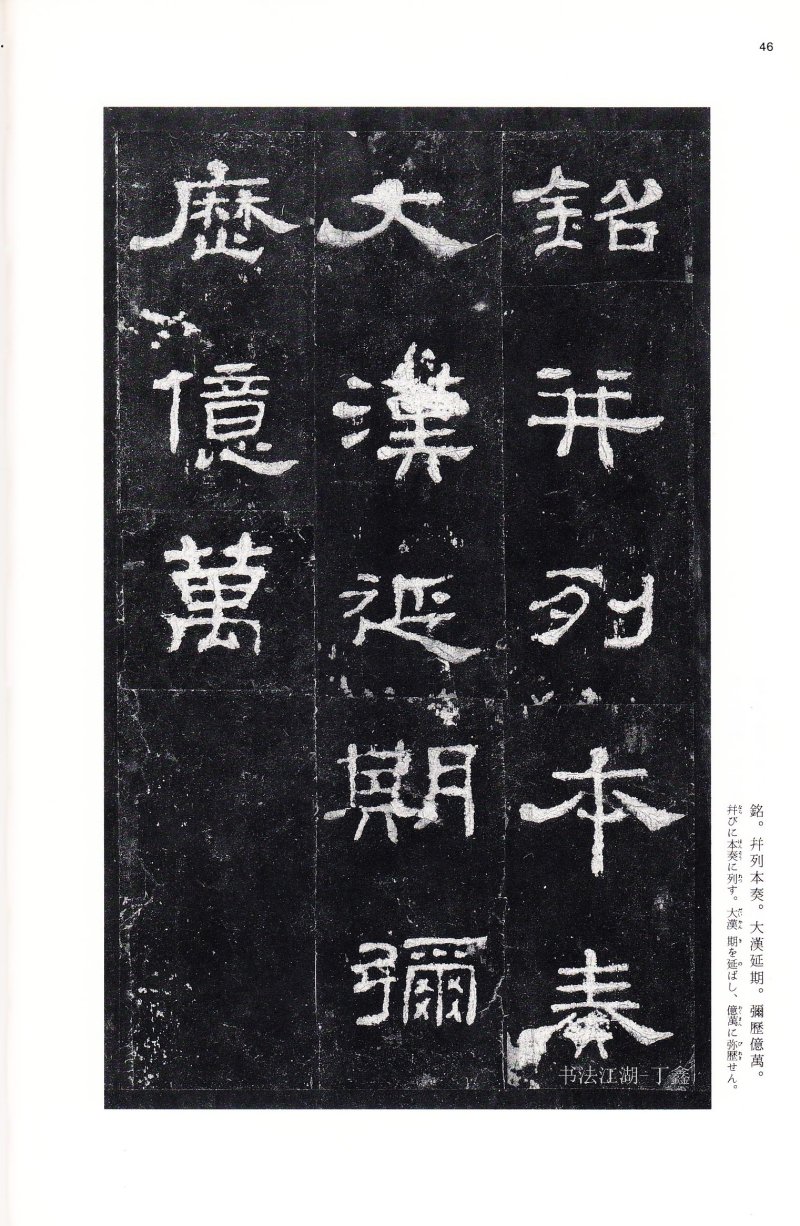 46
銘并列本奏
大漢延期彌
歷億萬
銘。幷列本奏。大漢延期。彌歷億萬。
幷びに本奏に列す。大漢 期を延ばし、億萬に弥歷せん。
书法江湖 丁鑫